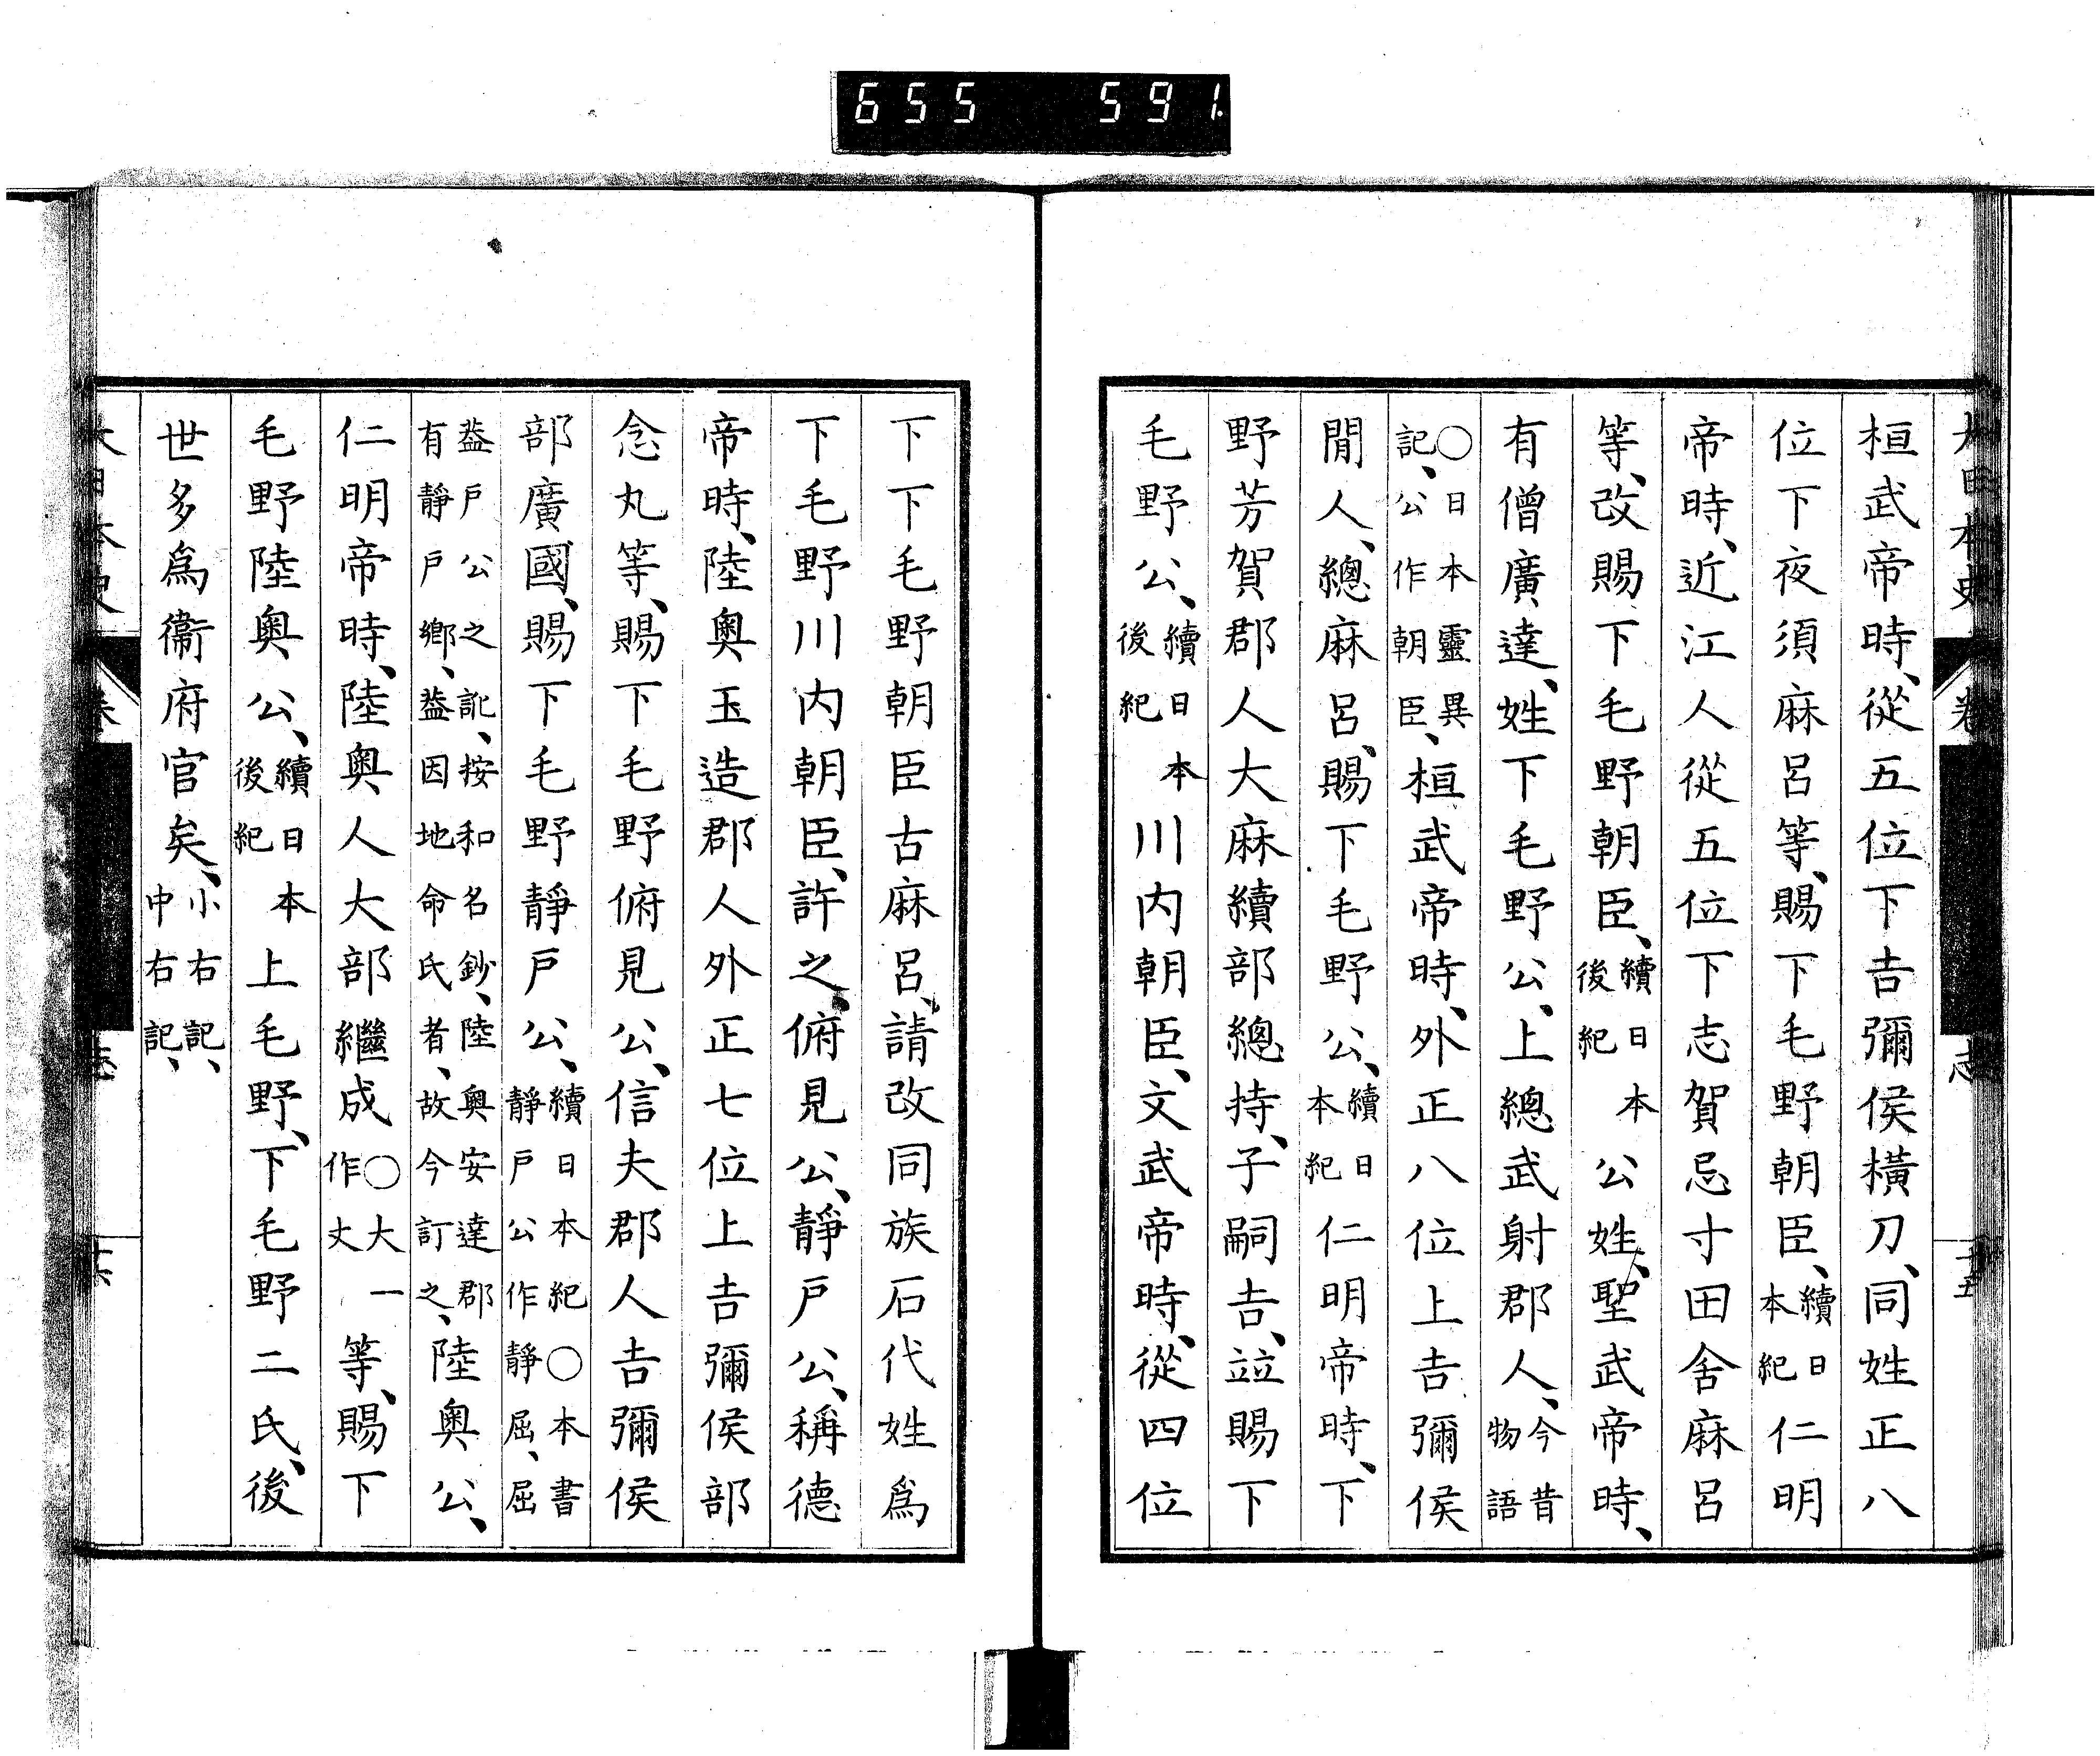 655 591.
桓武帝時、從五位下吉彌侯橫刀、同姓正八
位下夜須麻呂等、賜下毛野朝臣、續日本紀仁明
帝時、近江人從五位下志賀忌寸田舍麻呂
等、改賜下毛野朝臣、續日本後紀公姓、聖武帝時、
有僧廣達、姓下毛野公、上總武射郡人、今昔物語
○日本靈異記、公作朝臣、桓武帝時、外正八位上吉彌侯
間人、總麻呂、賜下毛野公、續日本紀仁明帝時、下
野芳賀郡人大麻續部總持、子嗣吉、竝賜下
毛野公、續日本後紀川内朝臣、文武帝時、從四位
下下毛野朝臣古麻呂、請改同族石代姓爲
下毛野川内朝臣、許之、俯見公、靜戸公、稱德
帝時、陸奥玉造郡人外正七位上吉彌侯部
念丸等、賜下毛野俯見公、信夫郡人吉彌侯
部廣國、賜下毛野靜戸公、續日本紀○本書靜戸公作靜屈、屈
蓋戸公之訛、按和名鈔、陸奥安達郡有靜戸鄉、蓋因地命氏者、故今訂之、陸奥公、
仁明帝時、陸奥人大部繼成○大一作丈等、賜下
毛野陸奥公、續日本後紀上毛野、下毛野二氏、後
世多爲衞府官矣、小右記、中右記、